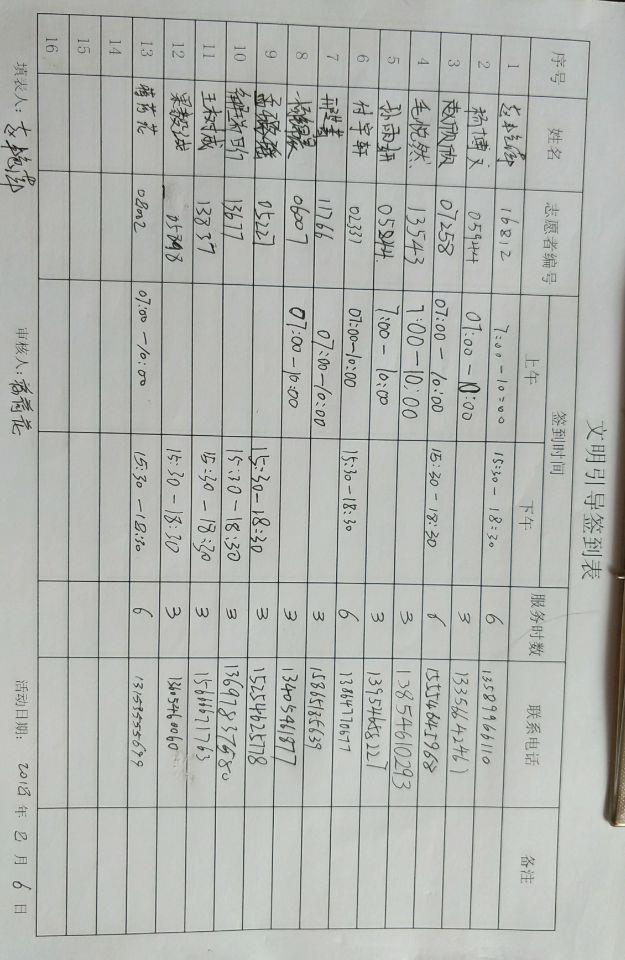 文明引导签到表
序号 姓名 志愿者编号 签到时间 服务时数 联系电话 备注
上午 下午
1 16812 7:00-10:00 15:30-18:30 6 13589966110
2 杨博文 05944 07:00-10:00 3 13356642461
3 赵帆帆 07258 07:00-10:00 15:30-18:30 6 15554645968
4 毛悦然 13543 7:00-10:00 3 13854610293
5 孙雨妍 05844 7:00-10:00 3 13954658227
6 付宇轩 02337 07:00-10:00 15:30-18:30 6 13864770677
7 11766 07:00-10:00 3 15865185639
8 06007 07:00-10:00 3 13405461877
9 05227 15:30-18:30 3 15254625718
10 13677 15:30-18:30 3 13697837680
11 13837 15:30-18:30 3 15666671763
12 05898 15:30-18:30 3 13605460060
13 08002 07:00-10:00 15:30-18:30 6
14
15
16
填表人: 审核人: 活动日期: 2018 年 8 月 6 日